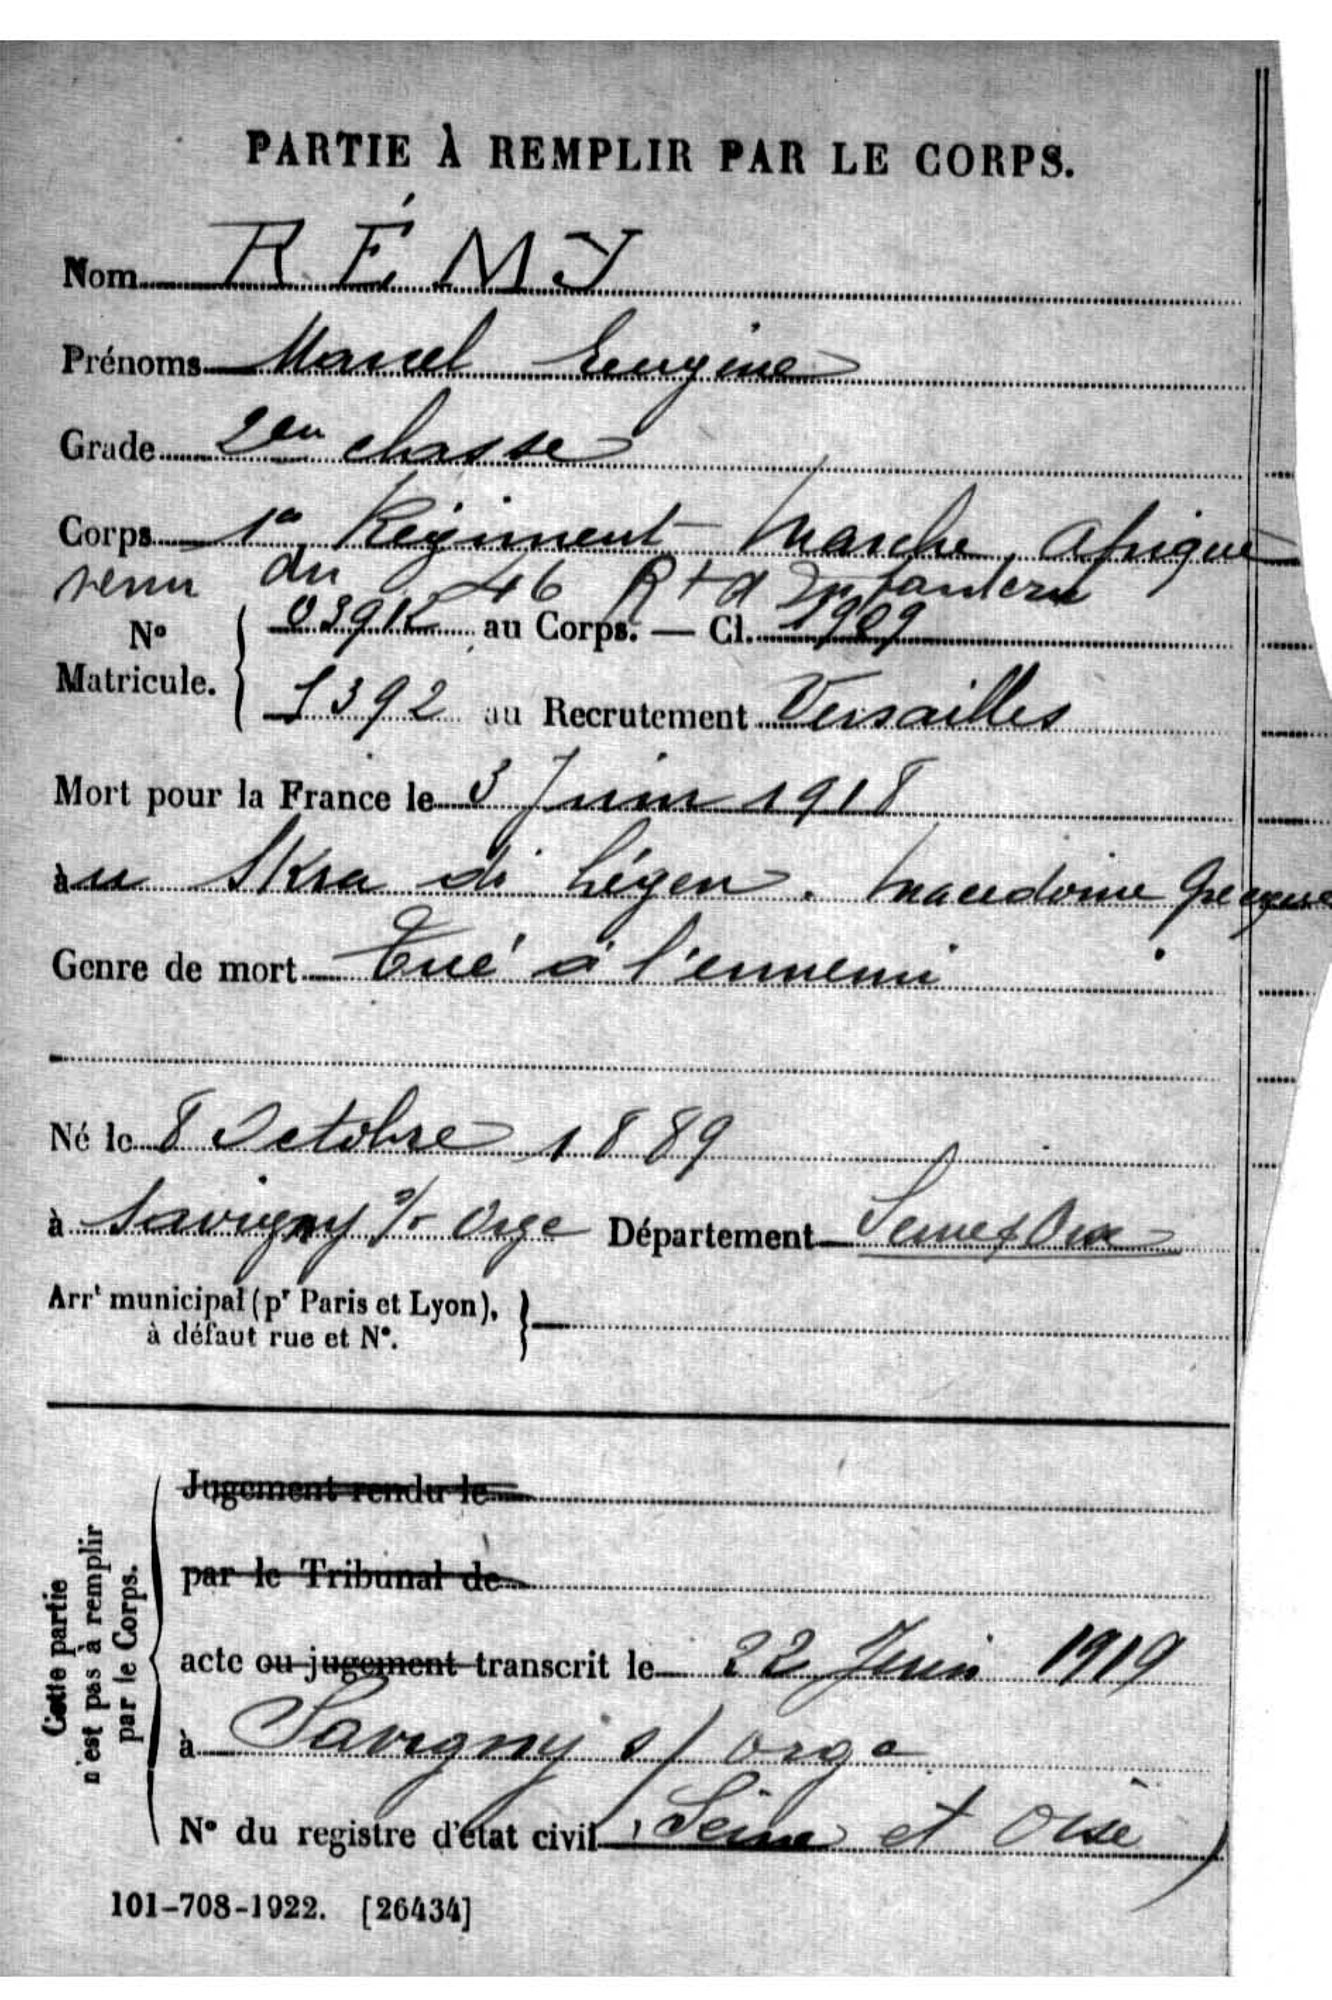 PARTIE À REMPLIR PAR LE CORPS.
Nom RÉMY
Prénoms Marcel Eugène
Grade 2em classe
Corps 1er Régiment Marche Afrique
venu du 46 Rt d Infanterie
N° Matricule. { 03912 au Corps. — Cl. 1909
1392 au Recrutement Versailles
Mort pour la France le 3 Juin 1918
àu Skra di Légen. Macedoine Grecque
Genre de mort Tué à l'ennemi
Né le 8 Octobre 1889
à Savigny s/- Orge Département Seine & Oise
Arrt municipal (pr Paris et Lyon), à défaut rue et N°. }
Cette partie n'est pas à remplir par le Corps.
Jugement rendu le
par le Tribunal de
acte ou jugement transcrit le 22 Juin 1919
à Savigny s/ orge
N° du registre d'état civil (Seine et Oise)
101-708-1922. [26434]